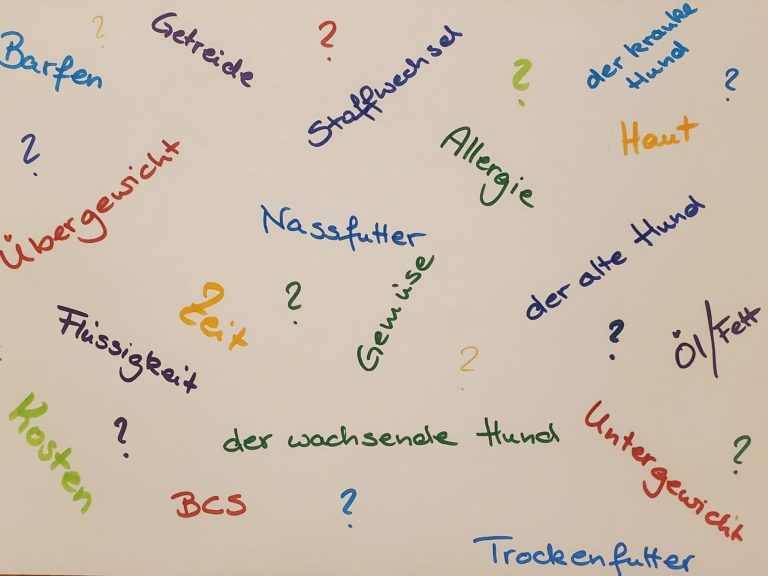 ?
Getreide
?
Barfen
Stoffwechsel
?
der kranke
Hund
?
?
Übergewicht
Allergie
Haut
Nassfutter
der alte Hund
Zeit
?
Gemüse
Flüssigkeit
?
?
Öl/Fett
Kosten
?
der wachsende Hund
Untergewicht
?
BCS
?
Trockenfutter